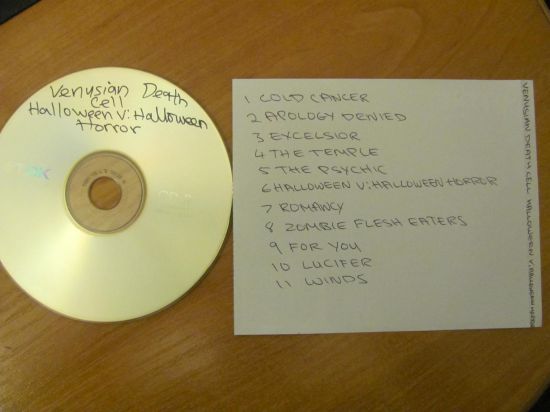 Venusian Death
Cell
Halloween V: Halloween
Horror
1 COLD CANCER
2 APOLOGY DENIED
3 EXCELSIOR
4 THE TEMPLE
5 THE PSYCHIC
6 HALLOWEEN V: HALLOWEEN HORROR
7 ROMANCY
8 ZOMBIE FLESH EATERS
9 FOR YOU
10 LUCIFER
11 WINDS
VENUSIAN DEATH CELL HALLOWEEN V: HALLOWEEN HORROR